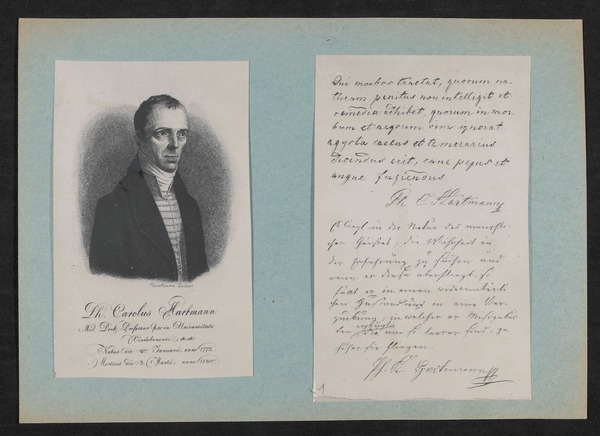 Ph. Carolus Hartmann
Med. Doct. Professor in Universitate
Vindobonensi
Natus die Januarii, anno 1773.
Mortuus die 8. Martii, anno 1830.
Qui morbos tractat, quorum na-
turam penitus non intelligit et
remedia adhibet, quorum in mor-
bum et aegrum vim ignorat
agyrta caecus et temerarius
dicendus erit, cane pejus et
angue fugiendus
Ph. C. Hartmann
liegt in der Natur des menschli-
chen Geistes, die Wahrheit in
der Erfahrung zu suchen und
wenn er diese überfliegt, so
er in einen widernatürli-
chen in eine Ver-
in welcher er
so leerer sind, je
höher sie fliegen.
Ph. K. Hartmann